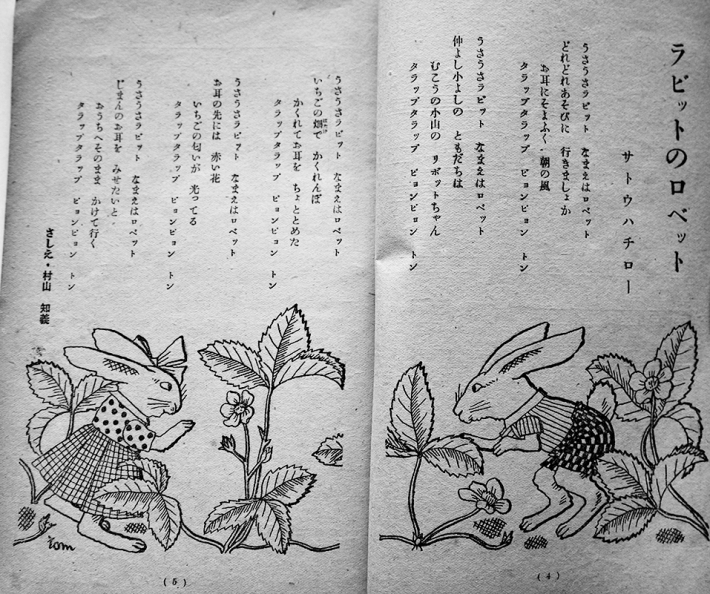 ラビットのロベット
サトウハチロー
うさうさラビット なまえはロベット
どれどれあそびに 行きましょか
お耳にそよふく 朝の風
タラップタラップ ピョンピョン トン
うさうさラビット なまえはロベット
仲よし小よしの ともだちは
むこうの小山の リボットちゃん
タラップタラップ ピョンピョン トン
(4)
うさうさラビット なまえはロベット
いちごの畑で かくれんぼ
かくれてお耳を ちょととめた
タラップタラップ ピョンピョン トン
うさうさラビット なまえはロベット
お耳の先には 赤い花
いちごの匂いが 光ってる
タラップタラップ ピョンピョン トン
うさうさラビット なまえはロベット
じまんのお耳を みせたいと
おうちへそのまま かけて行く
タラップタラップ ピョンピョン トン
さしえ・村山 知義
tom
(5)